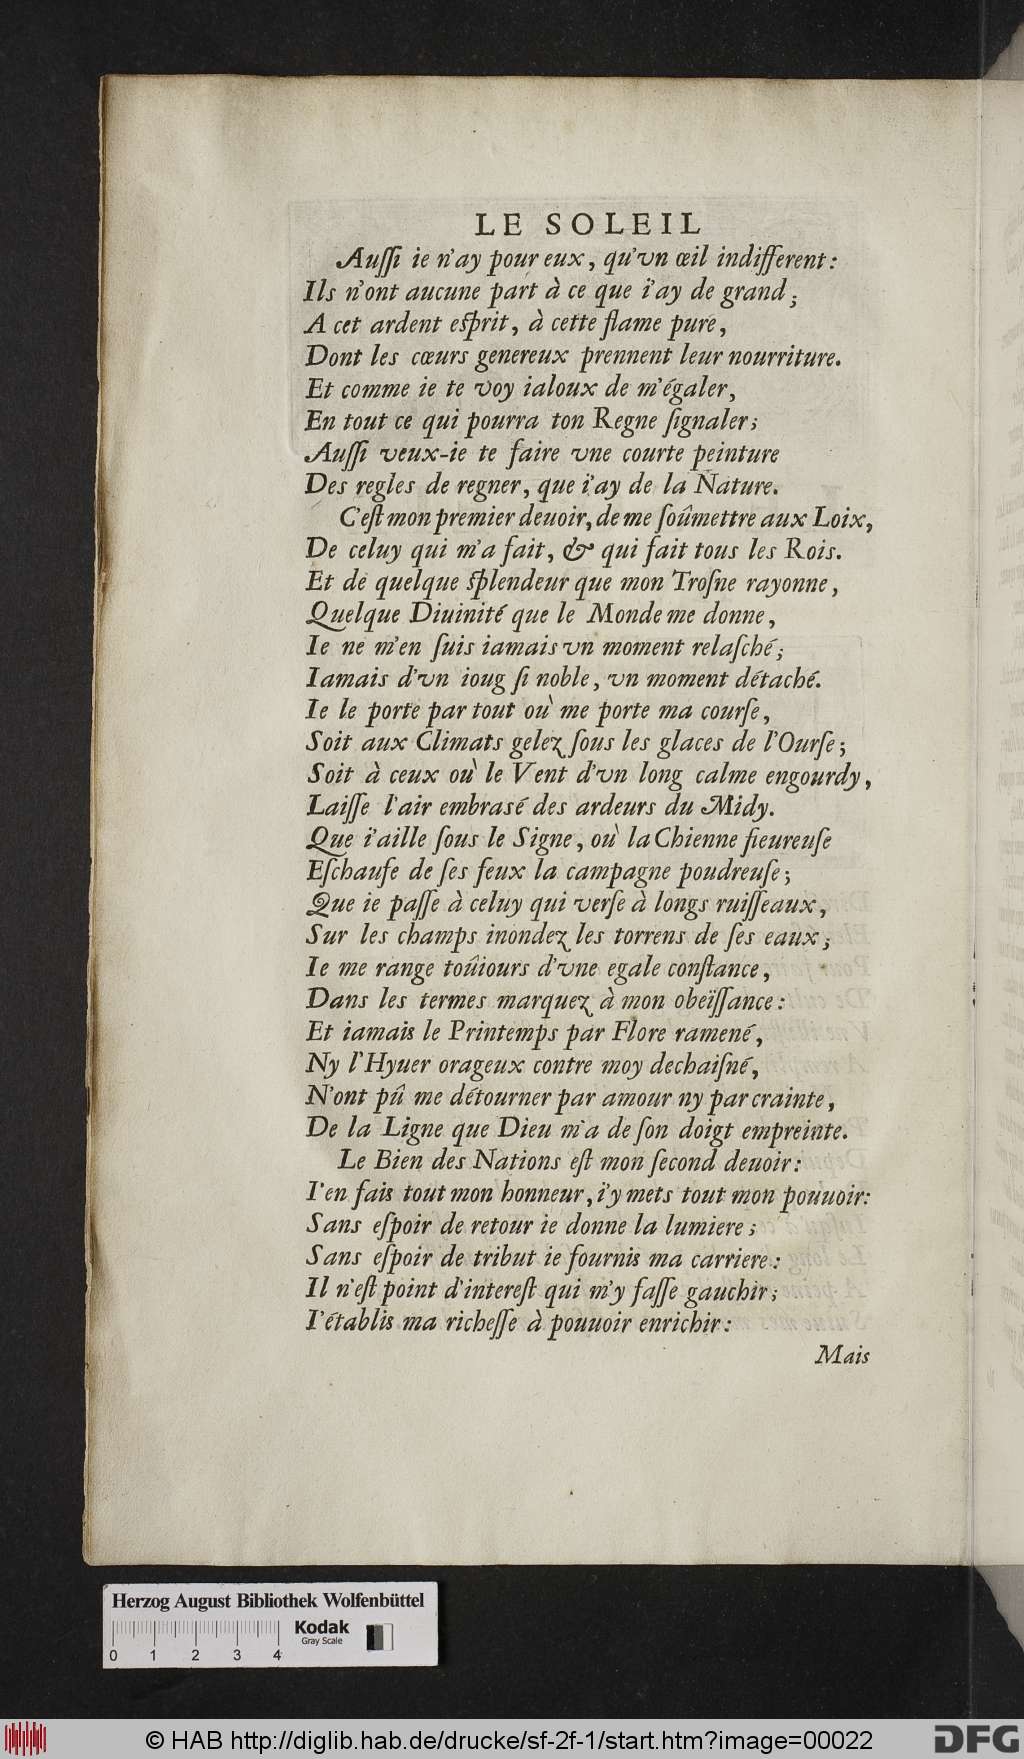 LE SOLEIL
Auſſi ie n'ay pour eux, qu'vn œil indifferent:
Ils n'ont aucune part à ce que i'ay de grand;
A cet ardent eſprit, à cette flame pure,
Dont les cœurs genereux prennent leur nourriture.
Et comme ie te voy ialoux de m'égaler,
En tout ce qui pourra ton Regne ſignaler;
Auſſi veux-ie te faire vne courte peinture
Des regles de regner, que i'ay de la Nature.
C'eſt mon premier deuoir, de me ſoûmettre aux Loix,
De celuy qui m'a fait, & qui fait tous les Rois.
Et de quelque ſplendeur que mon Troſne rayonne,
Quelque Diuinité que le Monde me donne,
Ie ne m'en ſuis iamais vn moment relaſché;
Iamais d'vn ioug ſi noble, vn moment détaché.
Ie le porte par tout où me porte ma courſe,
Soit aux Climats gelez ſous les glaces de l'Ourſe;
Soit à ceux où le Vent d'vn long calme engourdy,
Laiſſe l'air embrasé des ardeurs du Midy.
Que i'aille ſous le Signe, où la Chienne fieureuſe
Eſchaufe de ſes feux la campagne poudreuſe;
Que ie paſſe à celuy qui verſe à longs ruiſſeaux,
Sur les champs inondez les torrens de ſes eaux;
Ie me range toûiours d'vne egale conſtance,
Dans les termes marquez à mon obeïſſance:
Et iamais le Printemps par Flore ramené,
Ny l'Hyuer orageux contre moy dechaiſné,
N'ont pû me détourner par amour ny par crainte,
De la Ligne que Dieu m'a de ſon doigt empreinte.
Le Bien des Nations eſt mon ſecond deuoir:
I'en fais tout mon honneur, i'y mets tout mon pouuoir:
Sans eſpoir de retour ie donne la lumiere;
Sans eſpoir de tribut ie fournis ma carriere:
Il n'eſt point d'intereſt qui m'y faſſe gauchir;
I'établis ma richeſſe à pouuoir enrichir:
Mais
Herzog August Bibliothek Wolfenbüttel
Kodak
Gray Scale
0 1 2 3 4
© HAB http://diglib.hab.de/drucke/sf-2f-1/start.htm?image=00022
DFG